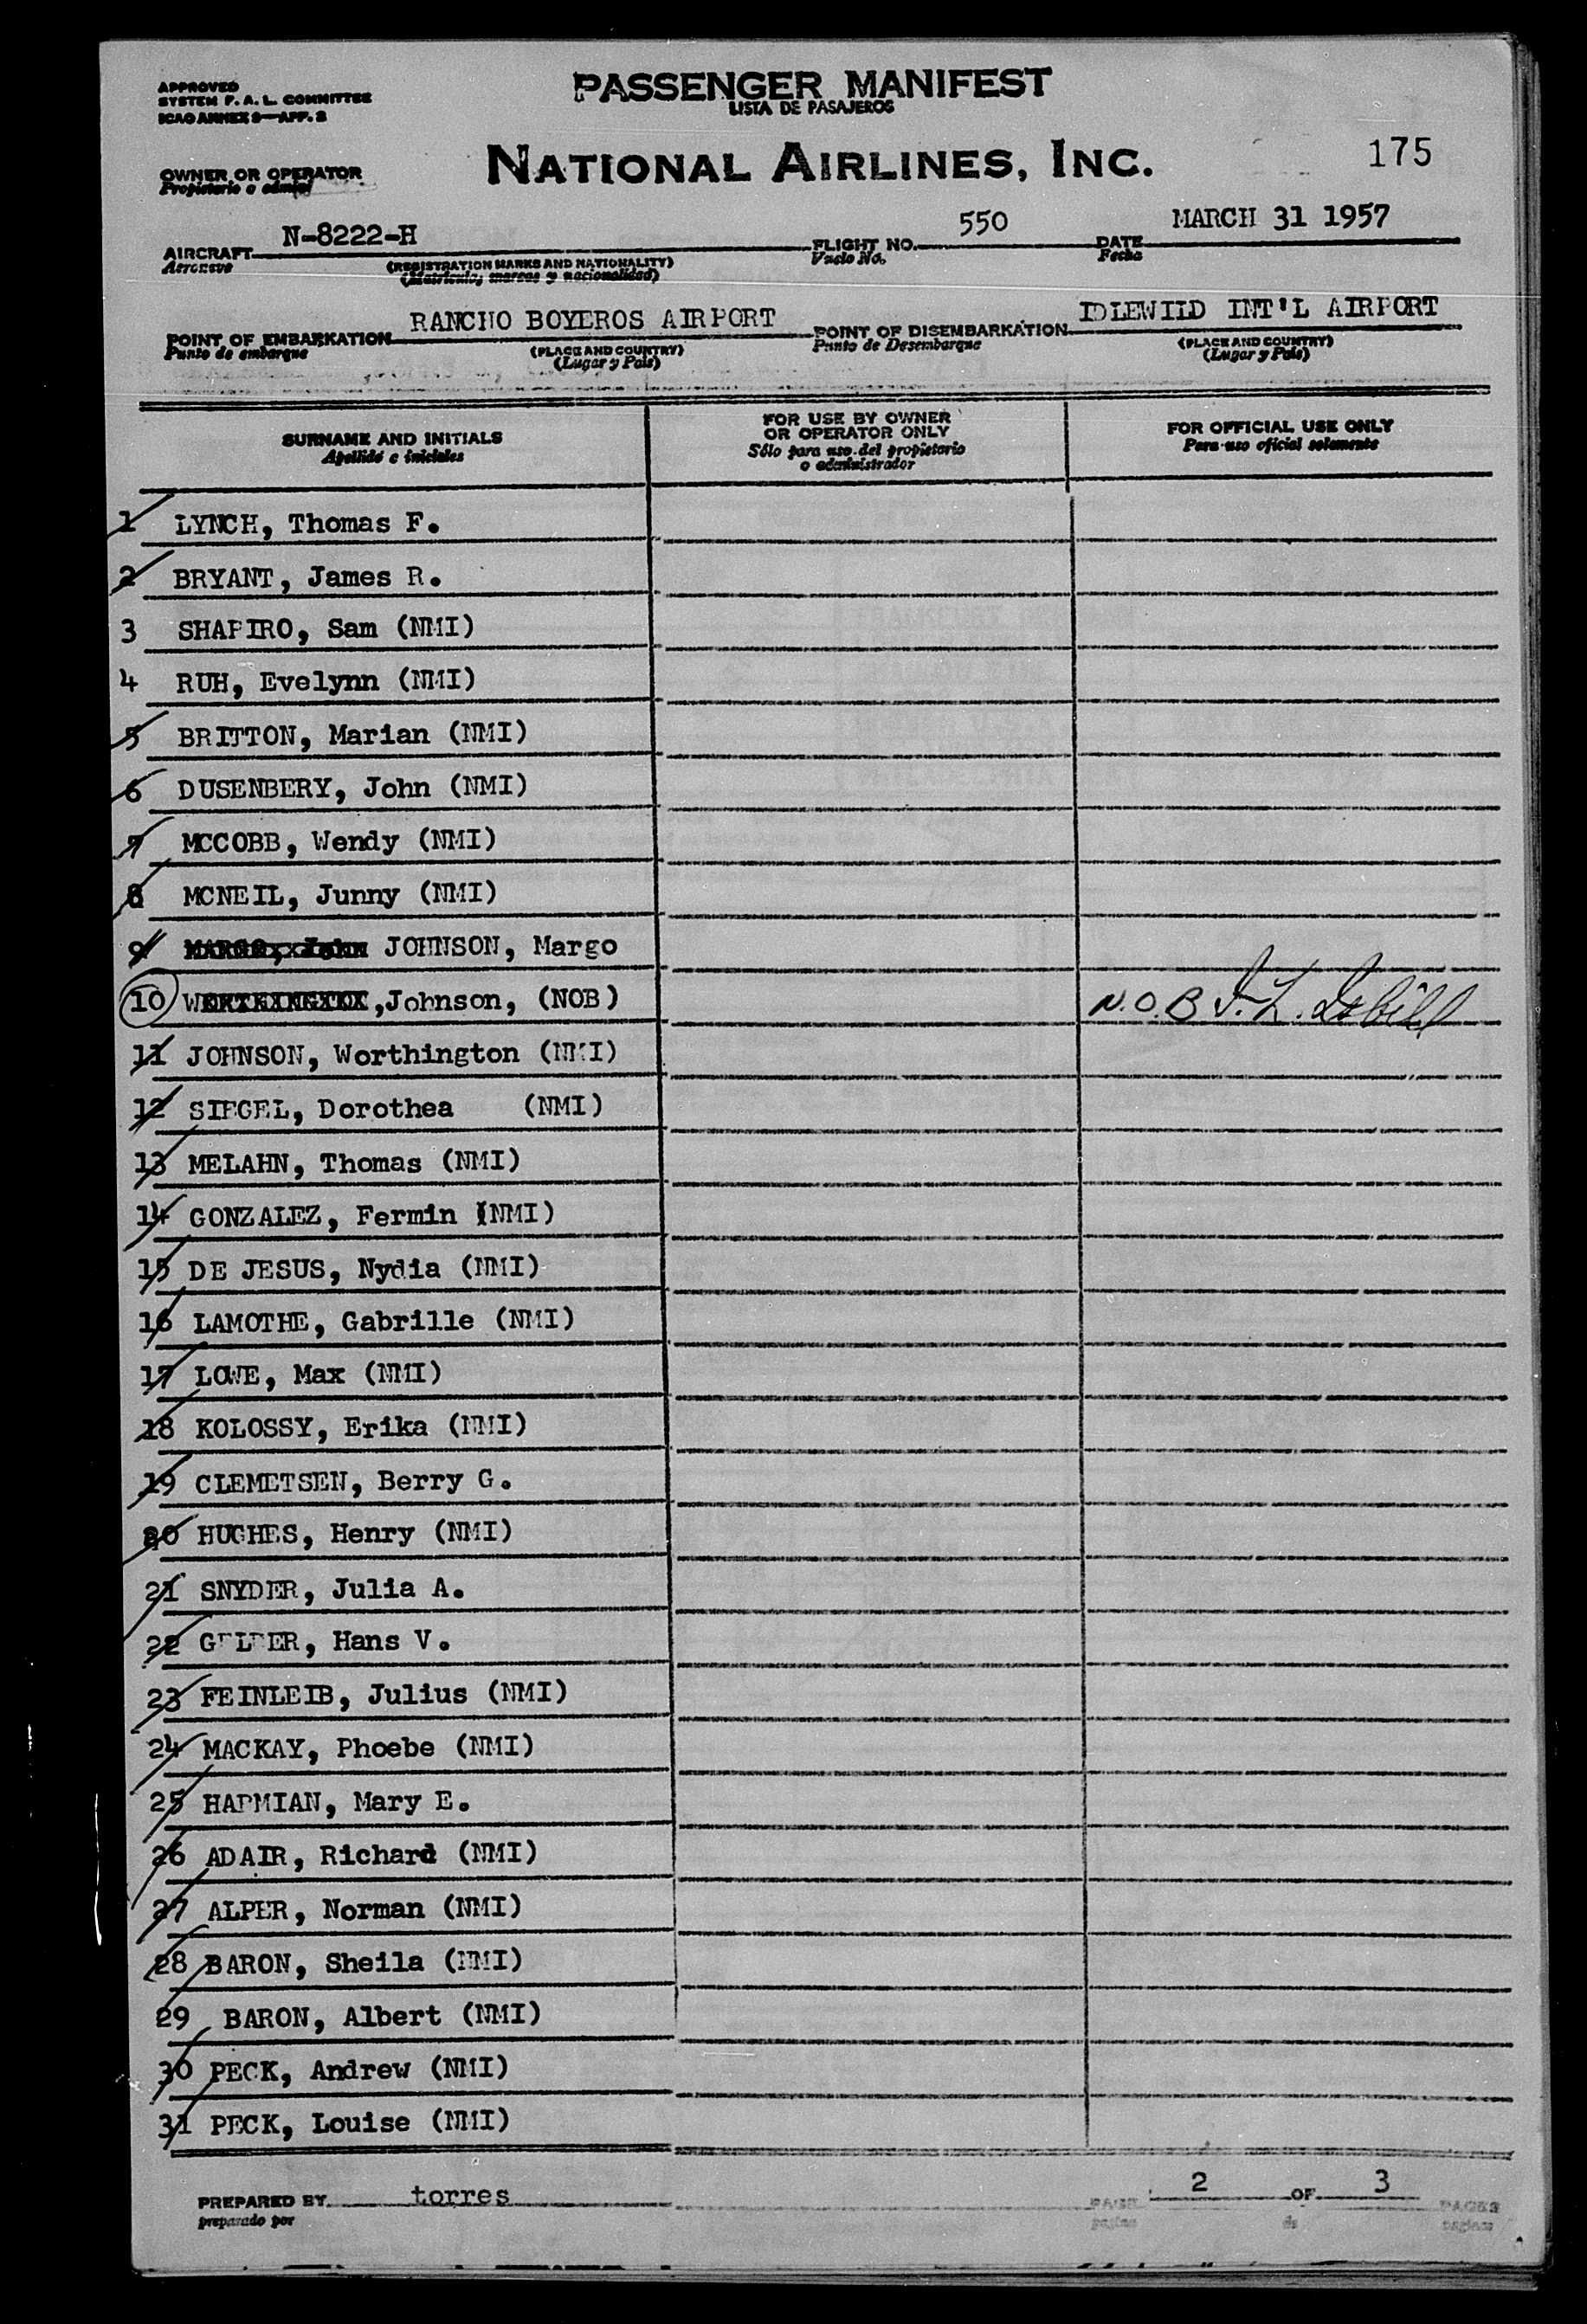 APPROVED
SYSTEM F. A. L. COMMITTEE
ICAO ANNEX 9—APP. 2
PASSENGER MANIFEST
LISTA DE PASAJEROS
NATIONAL AIRLINES, INC.
175
OWNER OR OPERATOR
Propietario o
AIRCRAFT N-8222-H FLIGHT NO. 550 DATE MARCH 31 1957
Aeronave (REGISTRATION MARKS AND NATIONALITY) Vuelo No. Fecha
(Matricula, marcas y nacionalidad)
POINT OF EMBARKATION RANCHO BOYEROS AIRPORT POINT OF DISEMBARKATION IDLEWILD INT'L AIRPORT
Punto de embarque (PLACE AND COUNTRY) Punto de Desembarque (PLACE AND COUNTRY)
(Lugar y País) (Lugar y País)
SURNAME AND INITIALS
Apellido e iniciales
FOR USE BY OWNER
OR OPERATOR ONLY
Sólo para uso del propietario
o administrador
FOR OFFICIAL USE ONLY
Para uso oficial solamente
1 LYNCH, Thomas F.
2 BRYANT, James R.
3 SHAPIRO, Sam (NMI)
4 RUH, Evelynn (NMI)
5 BRITTON, Marian (NMI)
6 DUSENBERY, John (NMI)
7 MCCOBB, Wendy (NMI)
8 MCNEIL, Junny (NMI)
9 JOHNSON, Margo
10 ,Johnson, (NOB) N.O.B
11 JOHNSON, Worthington (NMI)
12 SIEGEL, Dorothea (NMI)
13 MELAHN, Thomas (NMI)
14 GONZALEZ, Fermin (NMI)
15 DE JESUS, Nydia (NMI)
16 LAMOTHE, Gabrille (NMI)
17 LOWE, Max (NMI)
18 KOLOSSY, Erika (NMI)
19 CLEMETSEN, Berry G.
20 HUGHES, Henry (NMI)
21 SNYDER, Julia A.
22 Hans V.
23 FEINLEIB, Julius (NMI)
24 MACKAY, Phoebe (NMI)
25 Mary E.
26 ADAIR, Richard (NMI)
27 ALPER, Norman (NMI)
28 BARON, Sheila (NMI)
29 BARON, Albert (NMI)
30 PECK, Andrew (NMI)
31 PECK, Louise (NMI)
PREPARED BY torres PAGE 2 OF 3 PAGES
preparado por pagina de paginas